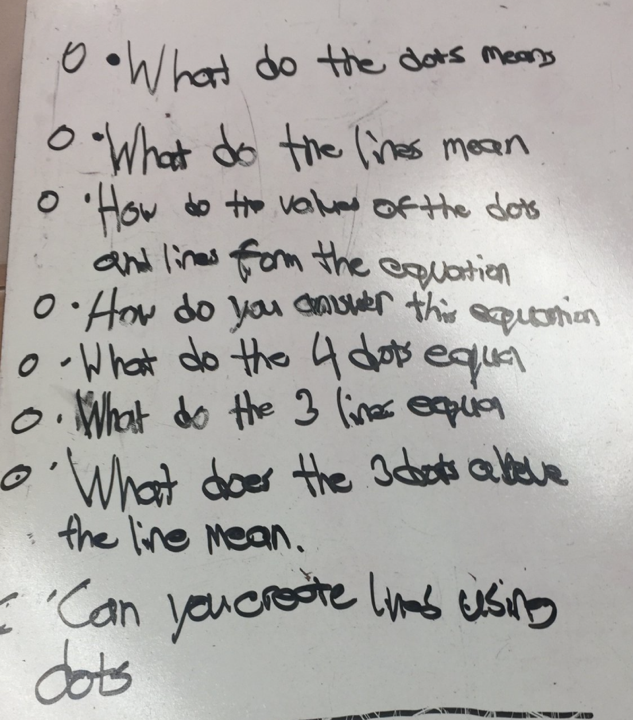 O • What do the dots means
O • What do the lines mean
O • How do the values of the dots
and lines form the equation
O • How do you answer this equation
O • What do the 4 dots equal
O • What do the 3 lines equal
O • What does the 3 dots above
the line mean.
• Can you create lines using
dots